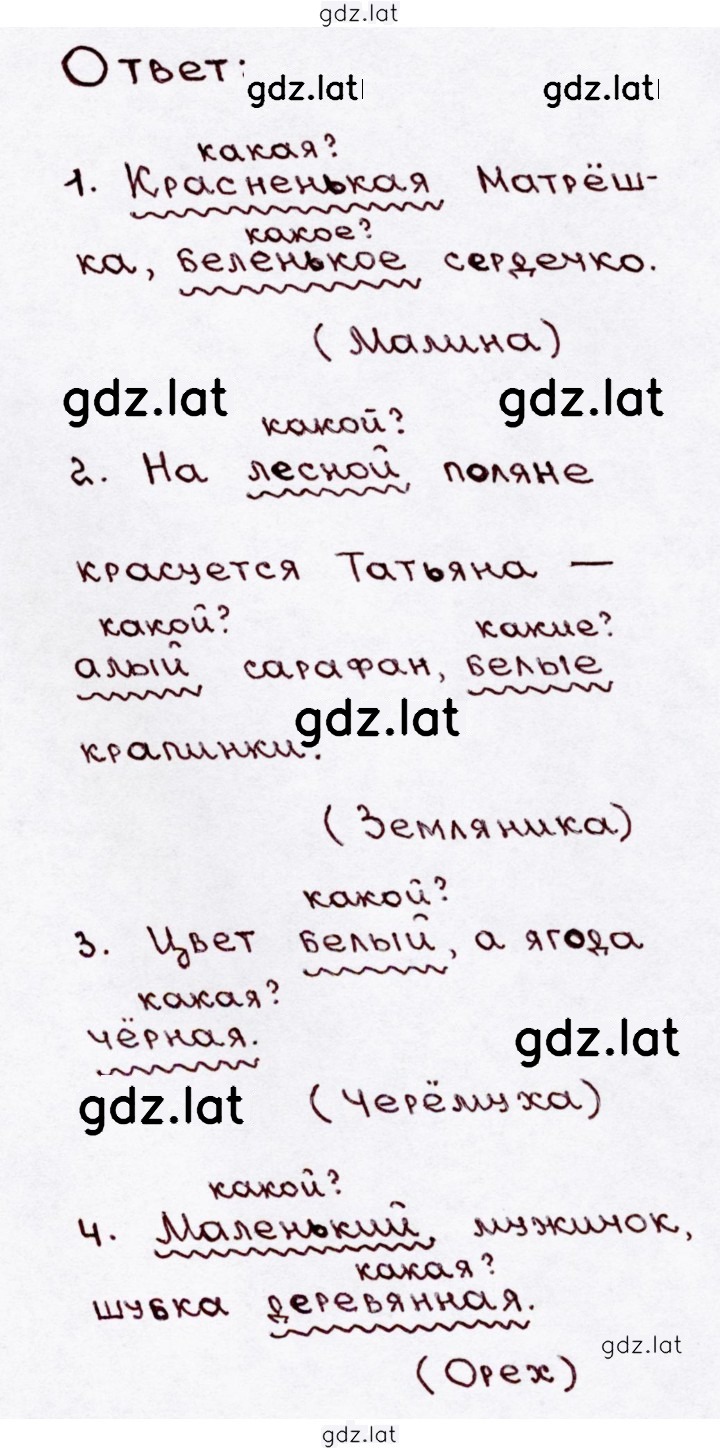 gdz.lat
Ответ:
gdz.lat gdz.lat
какая?
1. Красненькая Матрёш-
какое?
ка, беленькое сердечко.
(Малина)
gdz.lat gdz.lat
какой?
2. На лесной поляне
красуется Татьяна —
какой? какие?
алый сарафан, белые
gdz.lat
крапинки.
(Земляника)
какой?
3. Цвет белый, а ягода
какая?
чёрная.
gdz.lat
gdz.lat
(Черёмуха)
какой?
4. Маленький, мужичок,
какая?
шубка деревянная.
gdz.lat
(Орех)
gdz.lat